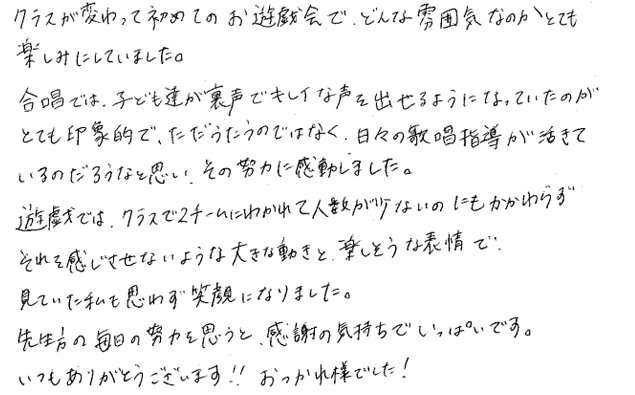 クラスが変わって初めてのお遊戯会で、どんな雰囲気なのかとても
楽しみにしていました。
合唱では、子ども達が裏声でキレイな声を出せるようになっていたのが
とても印象的で、ただうたうのではなく、日々の歌唱指導が活きて
いるのだろうなと思い、その努力に感動しました。
遊戯では、クラスで2チームにわかれて人数が少ないのにもかかわらず
それを感じさせないような大きな動きと、楽しそうな表情で、
見ていた私も思わず笑顔になりました。
先生方の毎日の努力を思うと、感謝の気持ちでいっぱいです。
いつもありがとうございます!! おつかれ様でした!